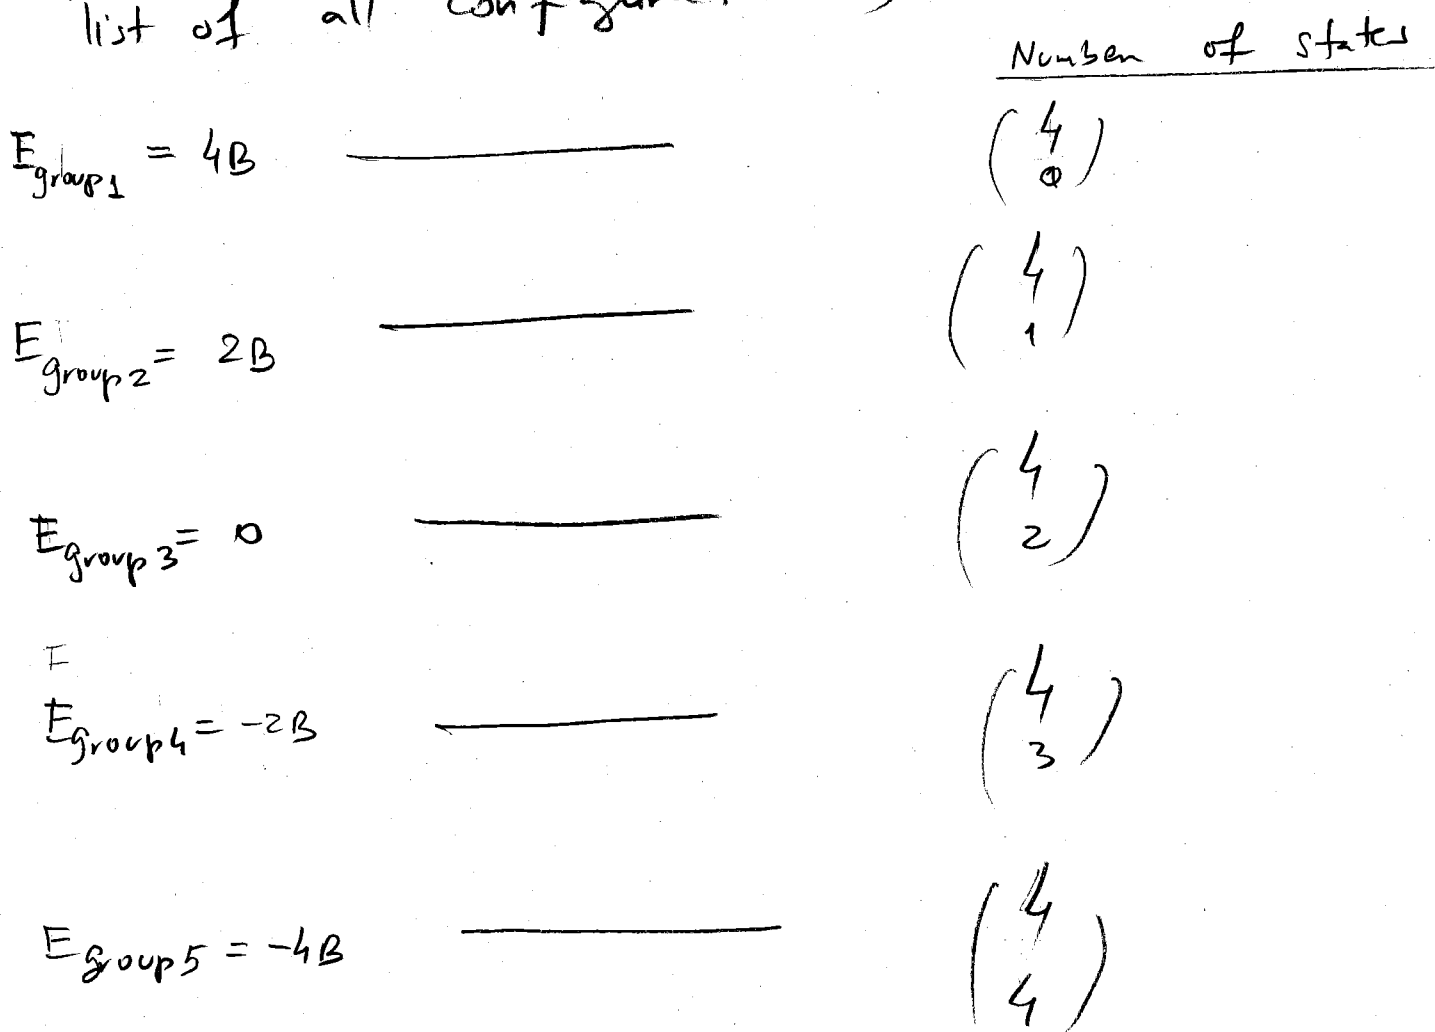 list of all
Number of states
E group1 = 4B (4 0)
E group2 = 2B (4 1)
E group3 = 0 (4 2)
E
E group4 = -2B (4 3)
E group5 = -4B (4 4)